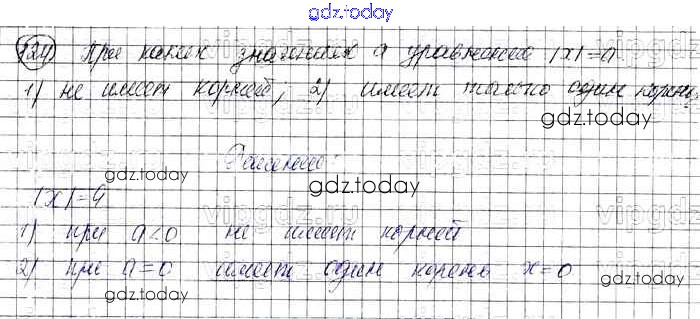 gdz.today
124 При каких значениях а уравнение |x|=a
1) не имеет корней, 2) имеет только один корень.
gdz.today
Решение:
gdz.today gdz.today
|x|=a
1) при a<0 не имеет корней
2) при a=0 имеет один корень x=0
gdz.today
gdz.today gdz.today